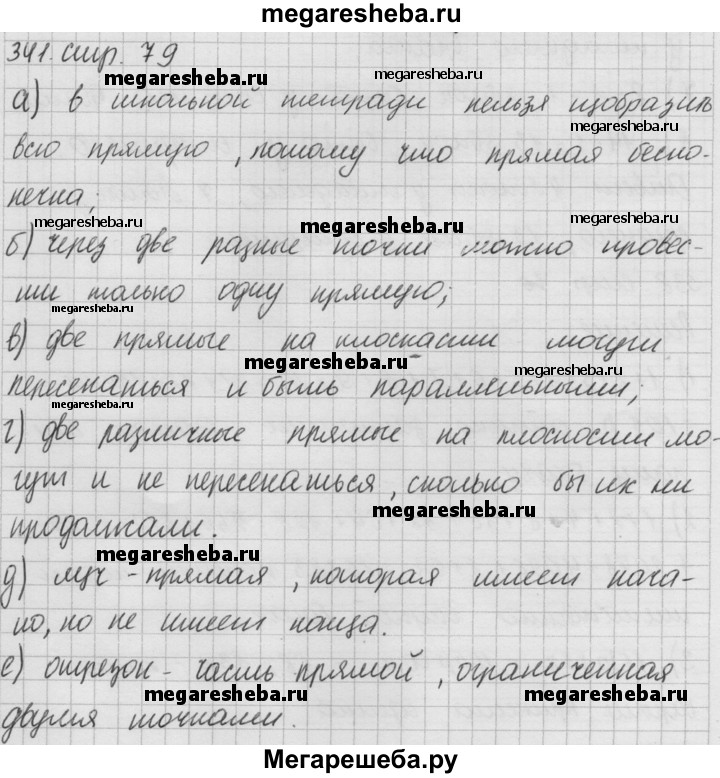 megaresheba.ru
341. стр. 79
megaresheba.ru
megaresheba.ru
а) в школьной тетради нельзя изобразить
megaresheba.ru
всю прямую, потому что прямая беско-
нечна;
megaresheba.ru
megaresheba.ru
megaresheba.ru
б) через две разные точки можно провес-
ти только одну прямую;
megaresheba.ru
в) две прямые на плоскасти могут
megaresheba.ru
megaresheba.ru
пересекаться и быть параллельными;
megaresheba.ru
г) две различные прямые на плоскости мо-
гут и не пересекаться, сколько бы их ни
megaresheba.ru
продолжали.
megaresheba.ru
megaresheba.ru
д) луч - прямая, которая имеет нача-
ло, но не имеет конца.
megaresheba.ru
е) отрезок - часть прямой, ограниченная
megaresheba.ru
megaresheba.ru
двумя точками.
Мегарешеба.ру